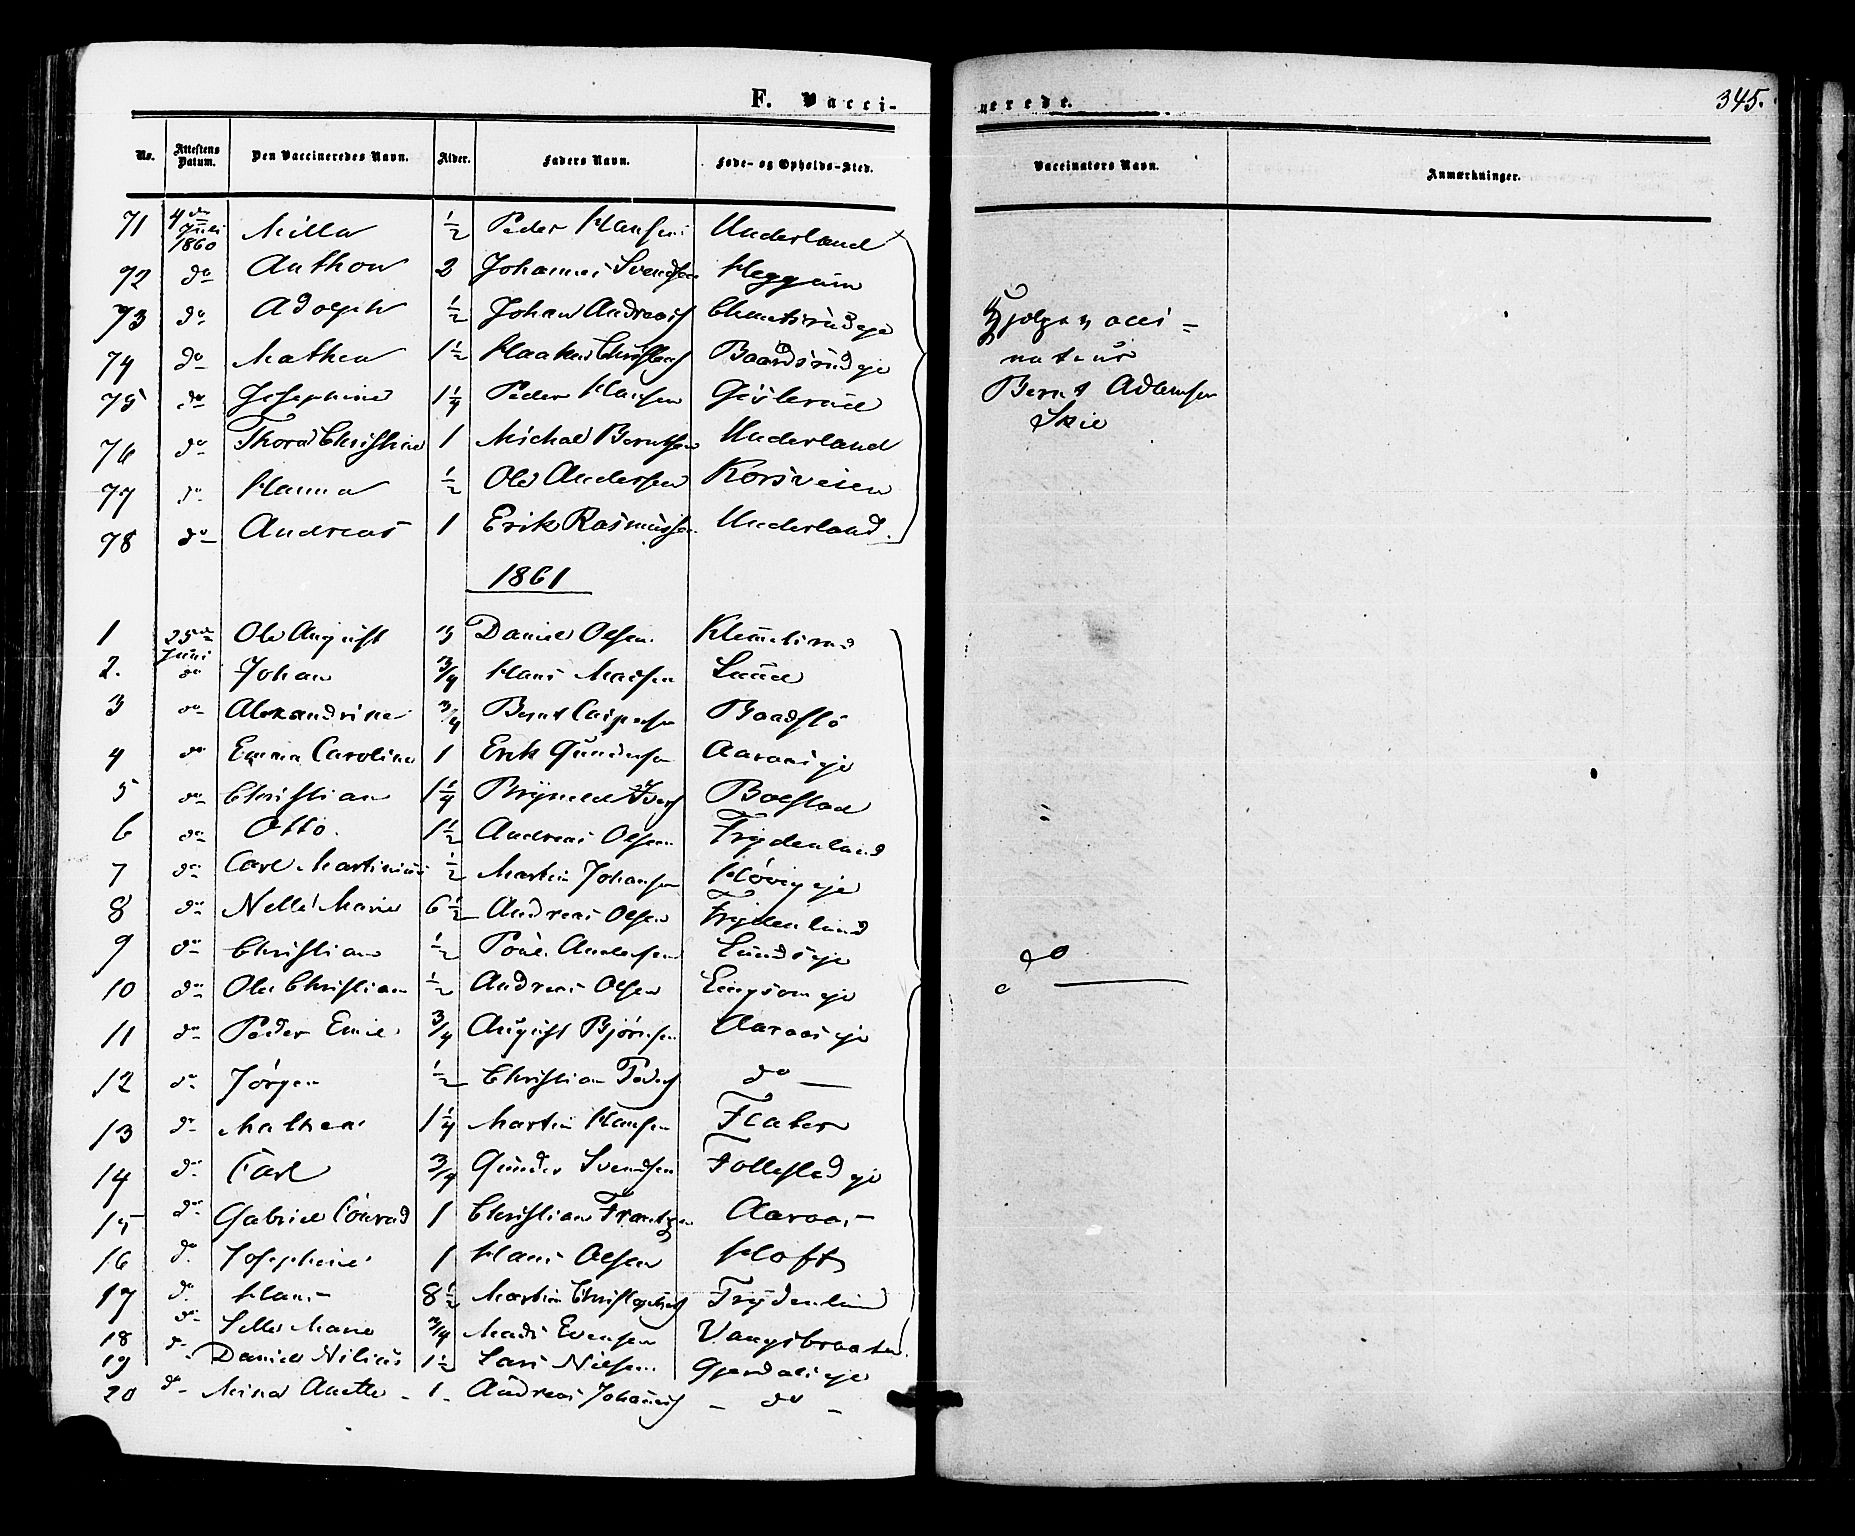 F. Vacci-
nerede.
345.
No. Attestens Datum. Den Vaccineredes Navn. Alder. Faders Navn. Føde- og Opholds-Sted. Vaccinators Navn. Anmærkninger.
71 4de Juli 1860 Milla ½ Peder Hansen Underland
72 do Anthon 2 Johannes Svendsen Heggum
73 do Adolph ½ Johan Andreas
74 do Mathea 1½ Haaken Baardsrudeje
75 do Josephine 1¼ Peder Hansen Gislerud
76 do Thora Christine 1 Michael Berntsen Underland
77 do Hanna ½ Ole Andersen Korsveien
78 do Andreas 1 Erik Rasmussen Underland.
Hjelpevacci-
nateur
Bernt Adamsen
Skie
1861
1 25de Juni Ole August Daniel Olsen Klemetsrud
2. do Johan ¾ Hans Madsen Lund
3 do Alexandrine ¾ Bernt Caspersen Baadstø
4 do Emma Caroline 1 Erik Gundersen Aaraaseje
5 do Christian 1¼ Brynild Ivers Bolstad
6 do Otto. 1½ Andreas Olsen Frydenlund
7 do Carl Martinius ½ Martin Johansen Høvigeje
8 do Nelle Marie 6½ Andreas Olsen Frydenlund
9 do Christian ½ Poul Andersen Lundseje
do
10 do Ole Christian ½ Andreas Olsen
11 do Peder Emil ¾ August Bjørnsen Aaraaseje
12 do Jørgen ½ Christian Peders do
13 do Mathea 1¼ Martin Hansen Flater
14 do Carl ¾ Gunder Svendsen Follestadeje
15 do Gabriel Conrad 1 Christian Frantzen Aaraas
16 do Josephine 1 Hans Olsen Hoft
17 do Hans 8½ Martin Christophers Frydenlund
18 do Marie ¾ Mads Evensen Vangsbraaten.
19 do Daniel Nilius 1½ Lars Nilsen Gjerdaleje
20 do Mina Anette - 1 - Andreas Johannes - do -